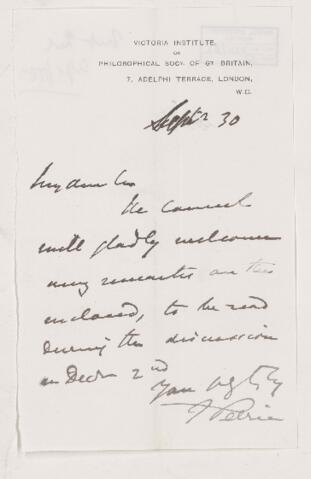 VICTORIA INSTITUTE,
OR
PHILOSOPHICAL SOCY. OF GT. BRITAIN,
7, ADELPHI TERRACE, LONDON,
W.C.
Septr 30
My dear Sir
The Council
will gladly welcome
any remarks on the
enclosed, to be read
during the discussion
on Decbr 2nd
Yours
F Petrie